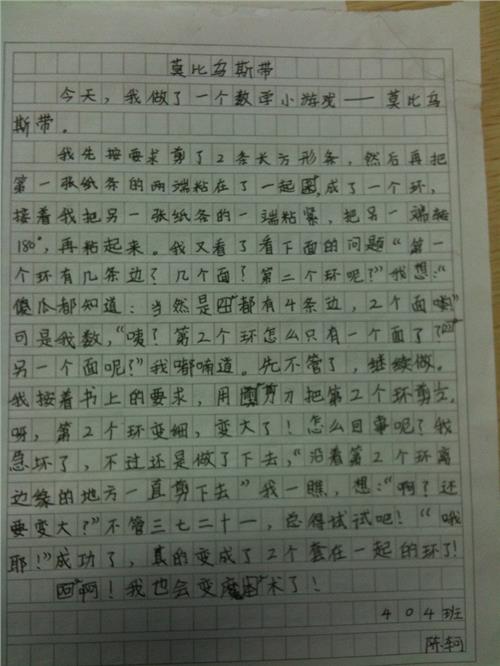 莫比乌斯带
今天，我做了一个数学小游戏——莫比乌
斯带。
我先按要求剪了2条长方形条，然后再把
第一张纸条的两端粘在了一起，成了一个环，
接着我把另一张纸条的一端粘紧，把另一端转
180°，再粘起来。我又看了看下面的问题“第一
个环有几条边？几个面？第二个环呢？”我想：“
傻瓜都知道：当然是都有4条边，2个面
可是我数，“咦！第2个环怎么只有一个面了？
另一个面呢？”我嘟喃道。先不管了，继续做。
我按着书上的要求，用剪刀把第2个环剪
呀，第2个环变细，变大了！怎么回事呢？我
急坏了，不过还是做了下去，“沿着第2个环离
边缘的地方一直剪下去”我一瞧，想：“啊？还
要变大？”不管三七二十一，总得试试吧！“哦
耶！”成功了，真的变成了2个套在一起的环了！
啊！我也会变魔术了！
404班
陈轲